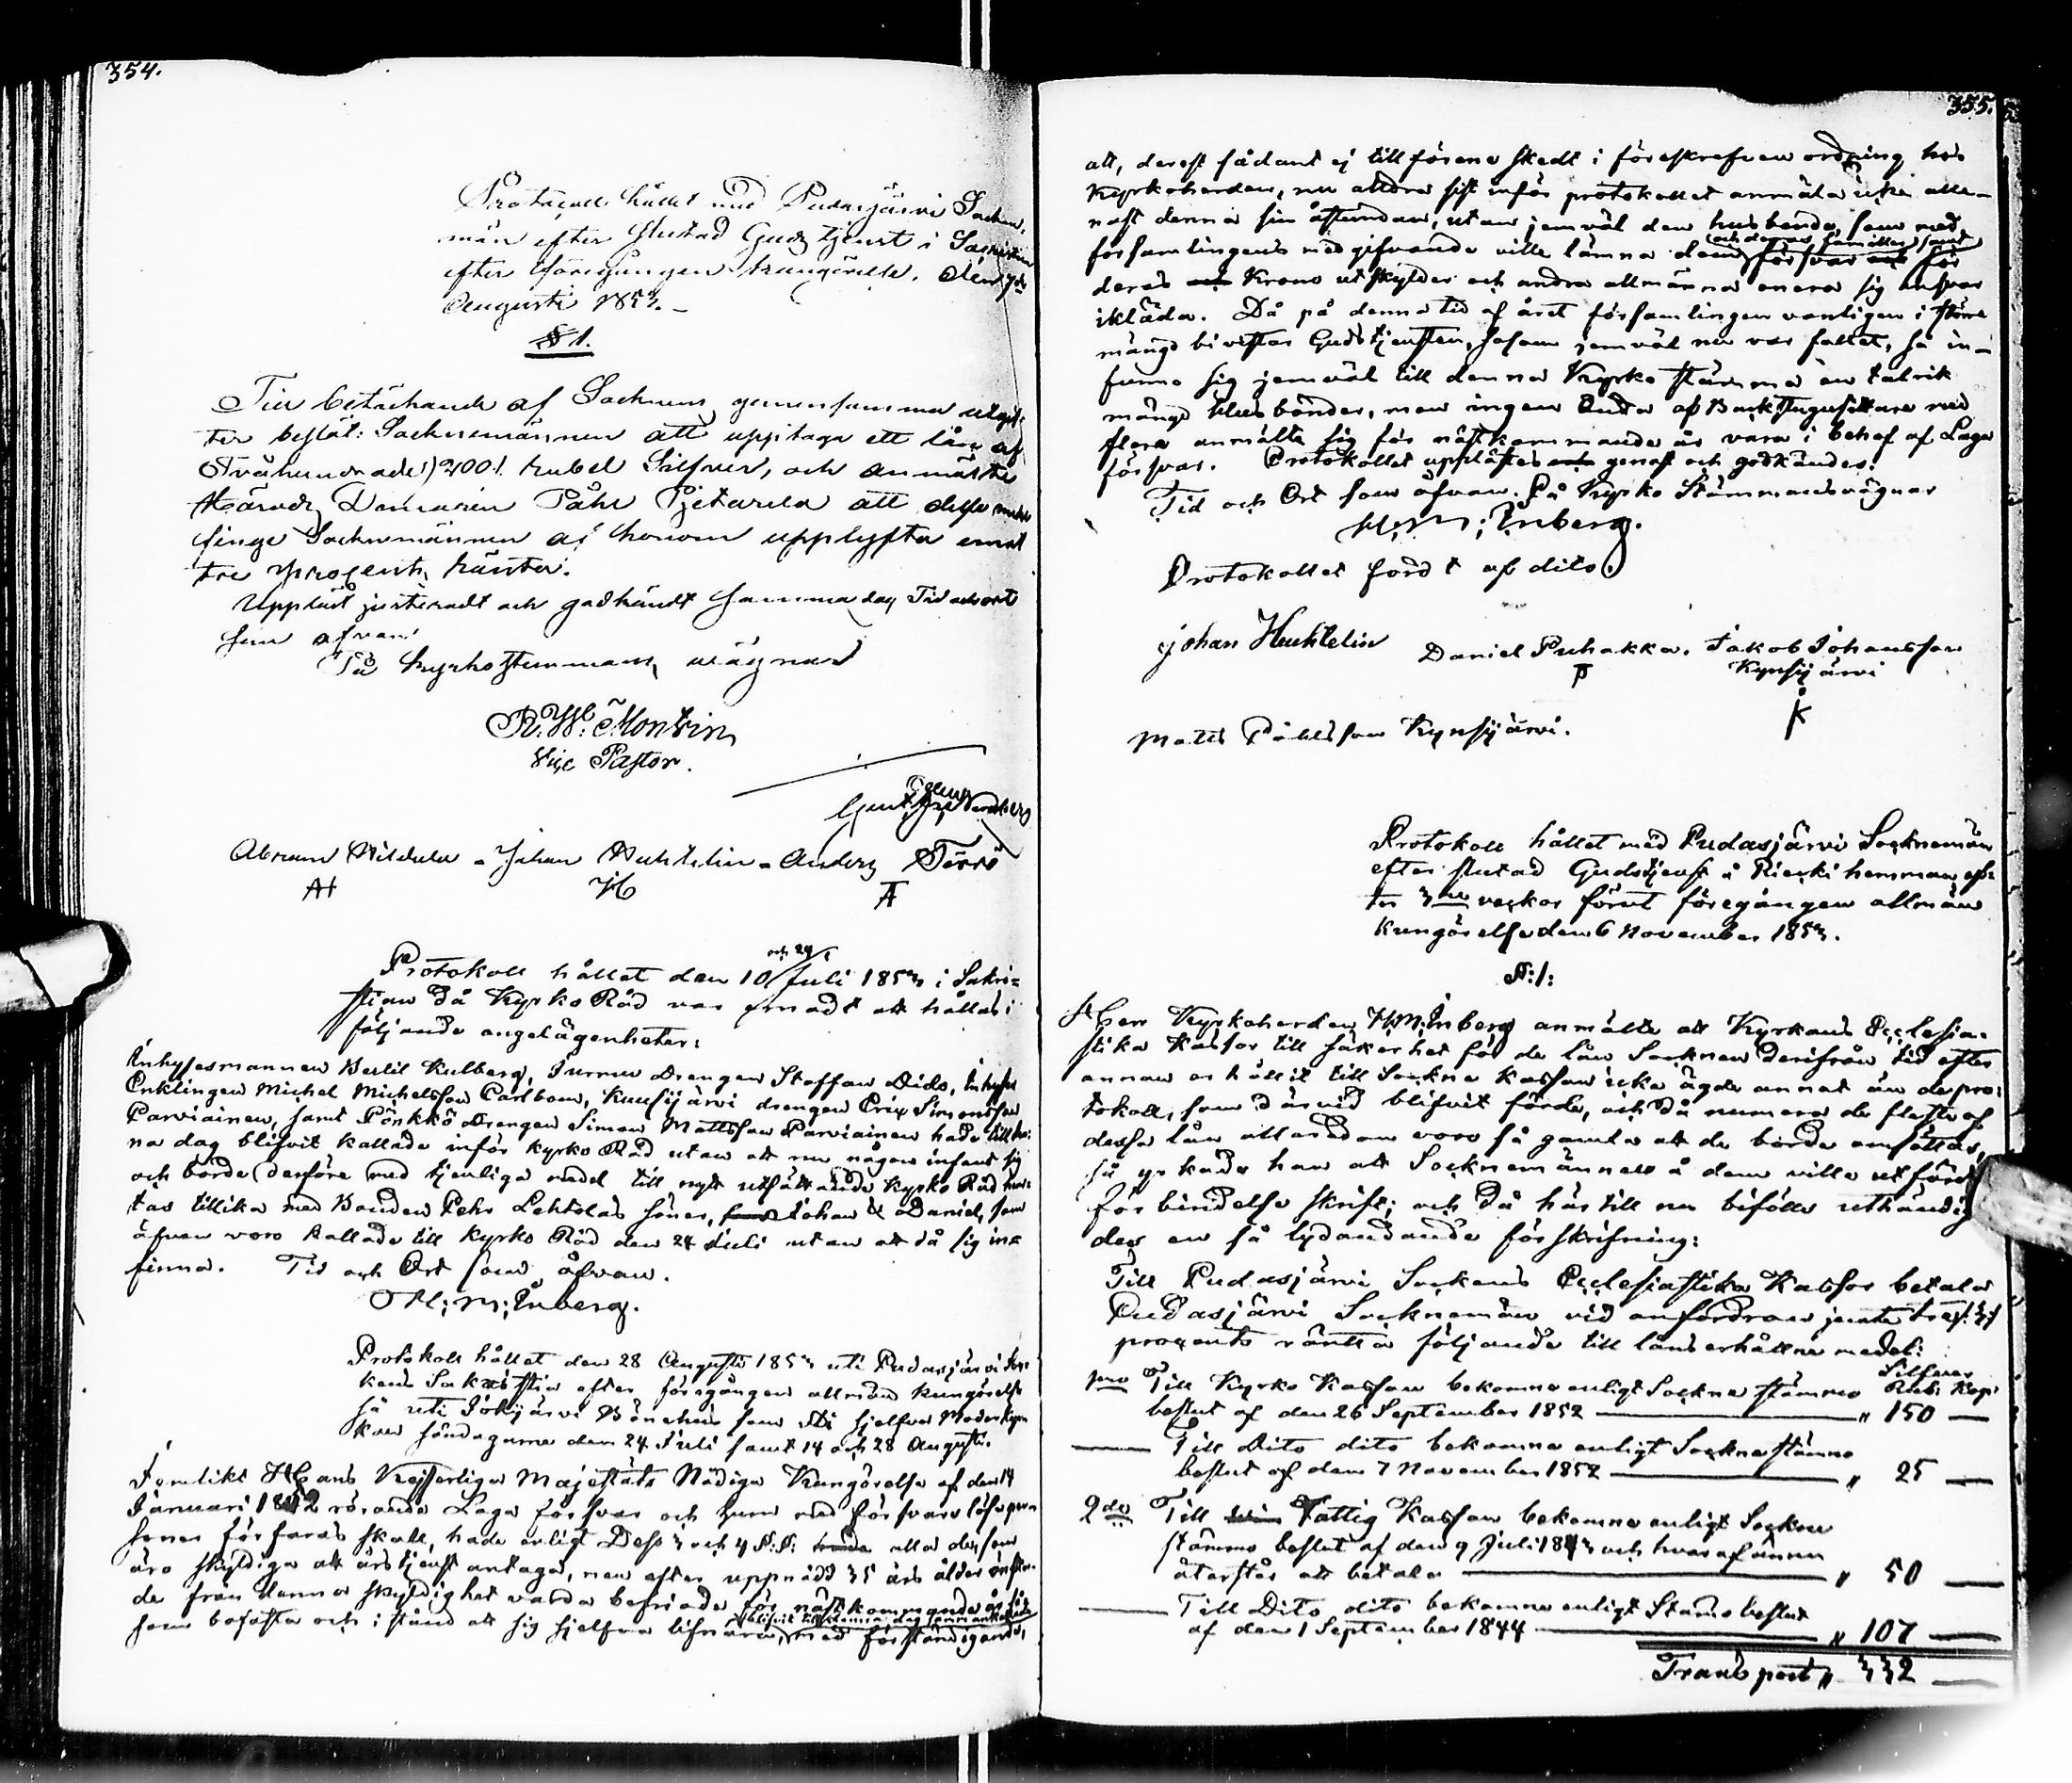 354.
Protocoll hållet med Pudasjärvi Sockne-
män efter slutad Gudstjenst i Sacristian
efter föregången kungörelse, den 7de
Augusti 1853.-
§ 1.
Till betäckande af Socknens gemensamma utgif-
ter beslöt: Socknemännen att upptaga ett lån af
Tvåhundrade/:200/: rubel Silfver, och anmälte
Härads Domaren Påhl Pjetarila att dessa medel
finge Socknemännen af honom upplyfta emot
tre procents räntor.
Uppläst justeradt och godkändt samma dag Tid och ort
som ofvan.
På Kyrkostemmans vägnar
R. W. Montin
Vice Pastor.
Abram Nildula - Johan Huhtelin - Anders Törrö
AH H A
Protokoll hållet den 10 och 24/ Juli 1853 i Sakri-
stian då Kyrko Råd var ernadt att hållas i
följande angelägenheter:
Inhysesmannen Bertil Kulberg, Jurmu Drengen Staffan Dido, Inhyses
Enklingen Michel Michelsson Carlbom, Kuusijärvi drengen Eric Simonsson
Parviainen, samt Pönkkö drengen Simon Mattsson Parviainen hade till den-
na dag blifvit kallade inför Kyrko Råd utan att nu någon infant sig
och borde derföre med tjenliga medel till nytt utsättande Kyrko Råd hem-
tas tillika med Bonden Pehr Lehtolas söner, Johan & Daniel, som
äfven voro kallade till Kyrko Råd den 24 Juli utan att då sig in-
finna. Tid och Ort som åfvan.
H: M: Enberg.
Protokoll hållet den 28 Augusti 1853 uti Pudasjärvi Soc-
kens Sakristia efter föregången allmän kungörelse
så uti Jokijärvi Bönehus som uti sjelfva Moderkyr-
kan söndagarne den 24 Juli samt 14 och 28 Augusti.
Jemlikt Hans Kejserliga Majestäts Nådiga Kungörelse af den 14
Januari 1852 rörande Laga försvar och huru med försvarslösa per-
soner förfaras skall, hade enligt Dess 3 och 4 §.§: alla de, som
äro skyldiga att årstjenst antaga, men efter uppnådd 35 års ålder önska
de från denna skyldighet varda befriade för nästkommande år såsom
som bofasta och i stånd att sig sjelfva lifnära, blifvit till denna dag sammankallade
med förständigande,
355.
att, derest sådant ej tillförene skedt i föreskrefven ordning hos
Kyrkoherden, nu alldra sist inför protokollet anmäla icke alle-
nast denna sin åstundan, utan jemväl den husbonde, som med
församlingens medgifvande ville lämna dem och deras familler försvar samt för
deras Krono utskylder och andra allmänna onera sig ansvar
ikläda. Då på denna tid af året församlingen vanligen i större
mängd bivistar Gudstjensten, såsom jemväl nu var fallet, så in-
funno sig jemväl till denna Kyrko stämma en talrik
mängd husbönder, men ingen Enda af Backstugusittare med
flera anmälte sig för nästkommande år vara i behof af Laga
försvar. Protokollet upplästes genast och godkändes.
Tid och Ort som åfvan. På Kyrko Stämmans vägnar
H: M: Enberg.
Protokollet fördt af dito
Johan Huhtelin Daniel Puhakka. Jakob Johansson
Kynsijärvi
P K
Matts Påhlsson Kynsijärvi.
Protokoll hållet med Pudasjärvi Socknemän
efter slutad Gudstjenst å Riekki hemman ef-
ter 3ne veckor förut föregången allmän
kungörelse den 6 November 1853.
§:1:
Herr Kyrkoherden H:M:Enberg anmälte att Kyrkans Ecclesia-
stika Kassor till säkerhet för de lån Socknen derifrån tid efter
annan erhållit till Sockne Kassan icke ägde annat än de pro-
tokoll, som därvid blifvit förde, och då numera de fleste af
dessa lån allaredan voro så gamla att de borde omsättas,
så yrkade han att Socknemännen å dem ville utfärda
förbindelse skrift; och då här till nu bifölls uthändig-
des en så lydandande förskrifning:
Till Pudasjärvi Sockens Ecclesiastika Kassor betala
Pudasjärvi Socknemän vid anfordran jemte tre/:3:/
procents ränta följande till låns erhållne medel:
Silfver
pmo Till Kyrko Kassan bekomne enligt Sockne stämmo Rub: Kop:
beslut af den 26 September 1852 — " 150 —
— Till Dito dito bekomne enligt Sockne stämmo
beslut af den 7 November 1852 — " 25 —
2do Till Fattig Kassan bekomne enligt Sockne
stämmo beslut af den 9 Juli 1843 och hvaraf ännu
återstår att betala — " 50 —
— Till Dito dito bekomne enligt Stämo beslut
af den 1 September 1844 — " 107 —
Transport " 332 —